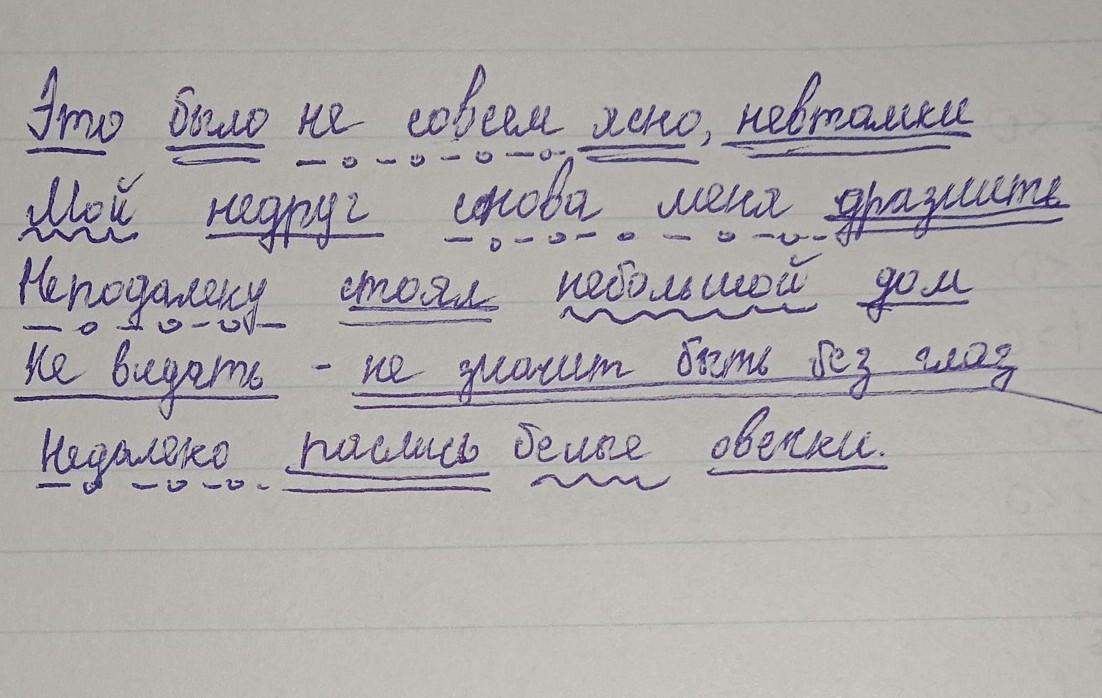 Это было не совсем ясно, невтомки
Мой недруг снова меня дразнить
Неподалеку стоял небольшой дом
Не видать - не значит быть без глаз
Недалеко паслись белые овечки.